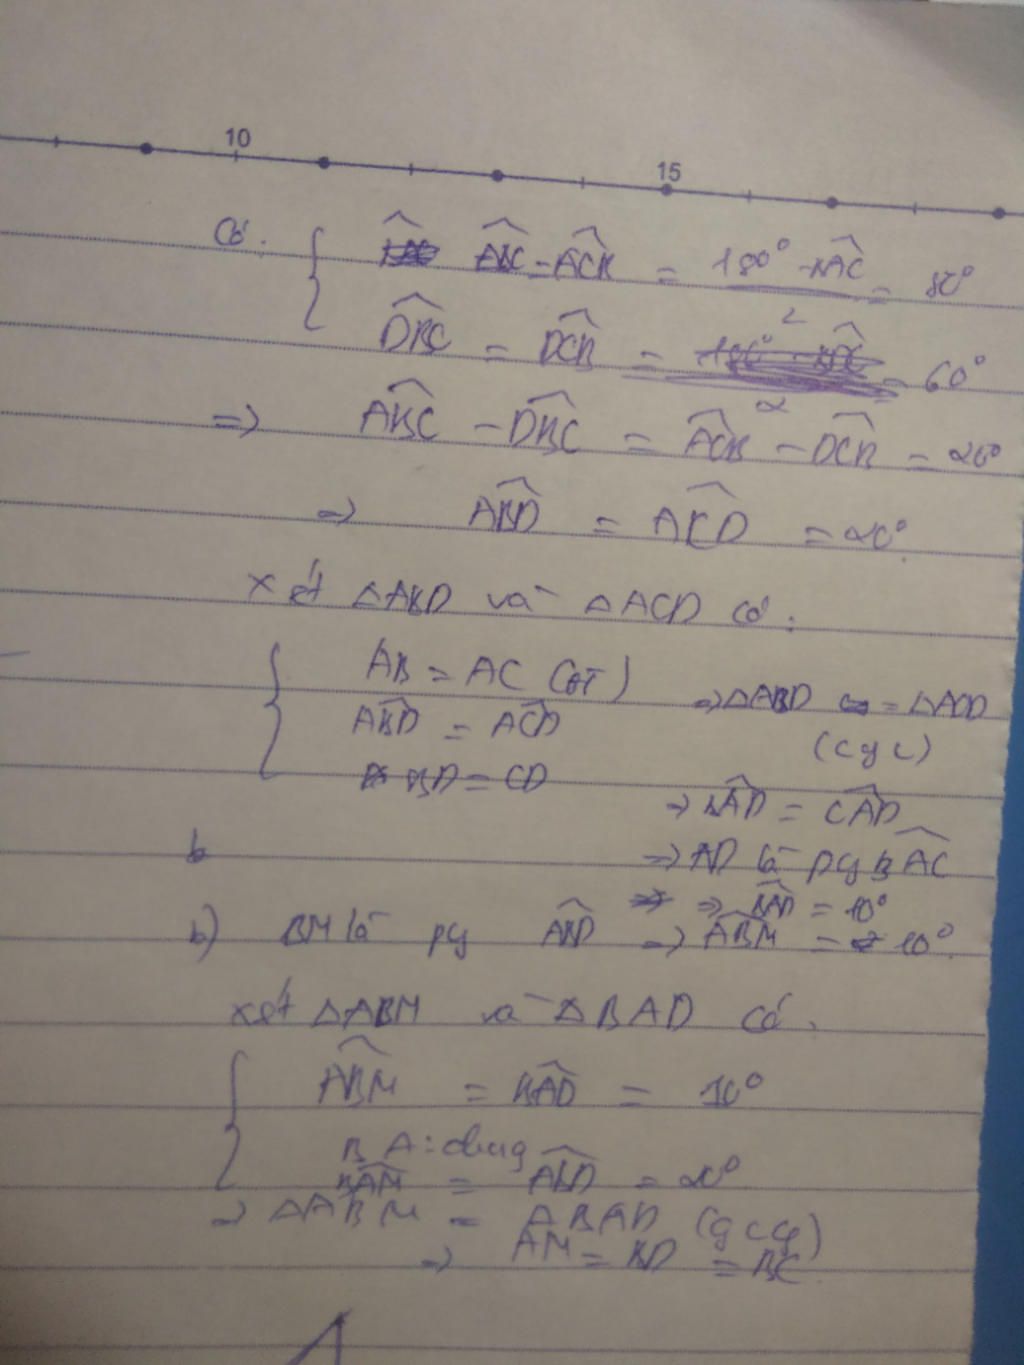 10
15
Có: { \widehat{ABC} = \widehat{ACB} = \frac{180° - \widehat{BAC}}{2} = 80°
\widehat{DBC} = \widehat{DCB} = 60°
=> \widehat{ABC} - \widehat{DBC} = \widehat{ACB} - \widehat{DCB} = 20°
=> \widehat{ABD} = \widehat{ACD} = 20°
xét ΔABD và ΔACD có:
{ AB = AC (GT) => ΔABD = ΔACD
\widehat{ABD} = \widehat{ACD} (cgc)
BD = CD
=> \widehat{BAD} = \widehat{CAD}
b => AD là pg \widehat{BAC}
=> \widehat{BAD} = 10°
b) BM là pg \widehat{ABD} => \widehat{ABM} = 10°
xét ΔABM và ΔBAD có:
{ \widehat{ABM} = \widehat{BAD} = 10°
BA: chung
\widehat{BAM} = \widehat{ABD} = 20°
=> ΔABM = ΔBAD (gcg)
=> AM = BD = BC